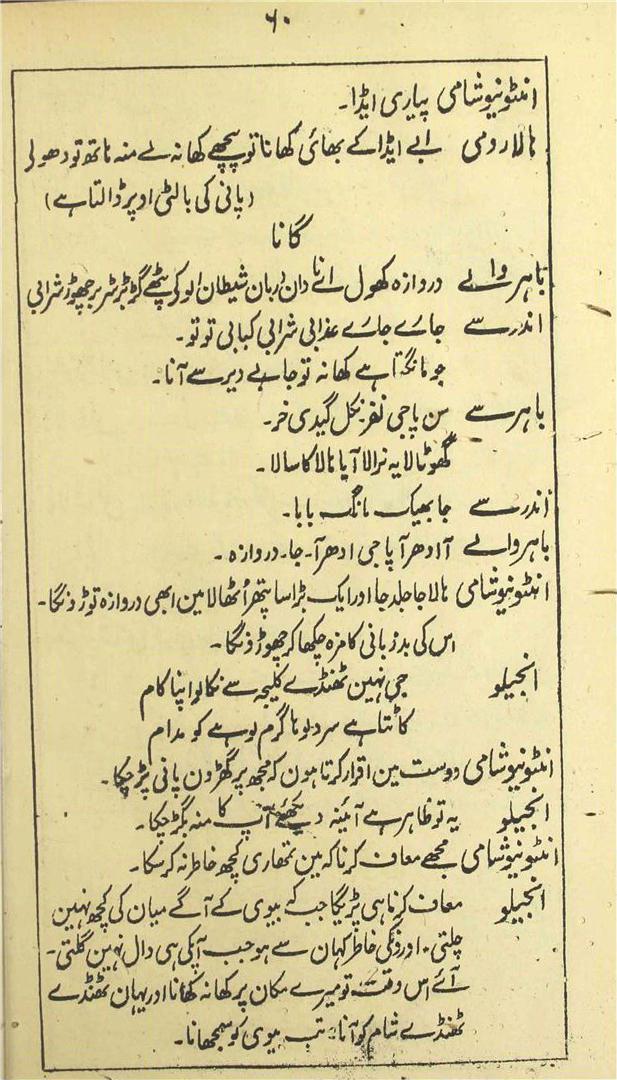 ۶۰
انٹونیو شامی پیاری ایڈا۔
نالا رومی ابے ایڈا کے بھائی کھانا تو پیچھے کھانہ لے منہ ہاتھ تو دھولے
(پانی کی بالٹی اوپر ڈالتا ہے)
گانا
باہر والے دروازہ کھول اے نادان دربان شیطان الو کے پٹھے گڑبڑ شر بر چھوڑ شرابی
اندر سے جارے جارے عذابی شرابی کبابی تو تو۔
جو مانگتا ہے کھانہ تو جابے دیر سے آنا۔
باہر سے سن پاجی نفر نکل گیدی خر۔
گھوٹالا یہ نرالا آیا نالا کا سالا۔
اندر سے جا بھیک مانگ بابا۔
باہر والے آ ادھر آ پاجی ادھر آ۔ جا۔ دروازہ۔
انٹونیو شامی نالا جا جلد جا اور ایک بڑا سا پتھر اُٹھا لا مین ابھی دروازہ توڑ دنگا۔
اس کی بدزبانی کا مزہ چکھا کر چھوڑ دنگا۔
انجیلو جی نہین ٹھنڈے کلیجہ سے نکالو اپنا کام
کاٹتا ہے سرد لوہا گرم لوہے کو مدام
انٹونیو شامی دوست مین اقرار کرتا ہون کہ مجھ پر گھڑون پانی پڑ چکا۔
انجیلو یہ تو ظاہر ہے آئینہ دیکھئے آپ کا منہ بگڑ چکا۔
انٹونیو شامی مجھے معاف کرنا کہ مین تمھاری کچھ خاطر نہ کر سکا۔
انجیلو معاف کرنا ہی پڑیگا جب کہ بیوی کے آگے میان کی کچھ نہین
چلتی۔ اورونکی خاطر کہان سے ہو جب آپکی ہی دال نہین گلتی۔
آئے اس وقت تو میرے مکان پر کھانہ کھانا اور یہان ٹھنڈے
ٹھنڈے شام کو آنا۔ تب بیوی کو سمجھانا۔